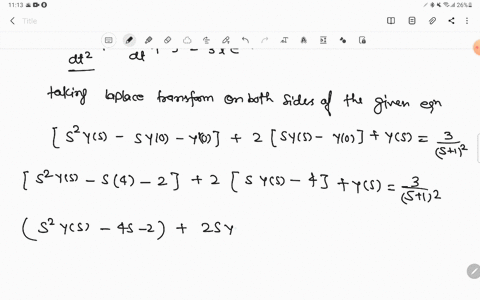 11:13
Title
dt² dt
taking laplace transform on both sides of the given eqn
[S²Y(S) - SY(0) - Y'(0)] + 2 [SY(S) - Y(0)] + Y(S) = 3/(S+1)²
[S²Y(S) - S(4) - 2] + 2 [S Y(S) - 4] + Y(S) = 3/(S+1)²
(S² Y(S) - 4S - 2) + 2SY